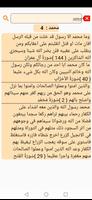 محمد
محمد : 4
وما محمد الا رسول قد خلت من قبله الرسل
افإن مات او قتل انقلبتم على اعقابكم ومن
ينقلب على عقبيه فلن يضر الله شيئا وسيجزي
الله الشاكرين { 144 } سورة آل عمران
ما كان محمد ابا احد من رجالكم ولكن رسول
الله وخاتم النبيين وكان الله بكل شيء عليما
{ 40 } سورة الأحزاب
والذين امنوا وعملوا الصالحات وامنوا بما نزل
على محمد وهو الحق من ربهم كفر عنهم
سيئاتهم واصلح بالهم { 2 } سورة محمد
محمد رسول الله والذين معه اشداء على الكفار
رحماء بينهم تراهم ركعا سجدا يبتغون فضلا
من الله ورضوانا سيماهم في وجوههم من اثر
السجود ذلك مثلهم في التوراة ومثلهم في
الإنجيل كزرع اخرج شطأه فآزره فاستغلظ
فاستوى على سوقه يعجب الزراع ليغيظ بهم
الكفار وعد الله الذين امنوا وعملوا الصالحات
منهم مغفرة واجرا عظيما { 29 } سورة الفتح